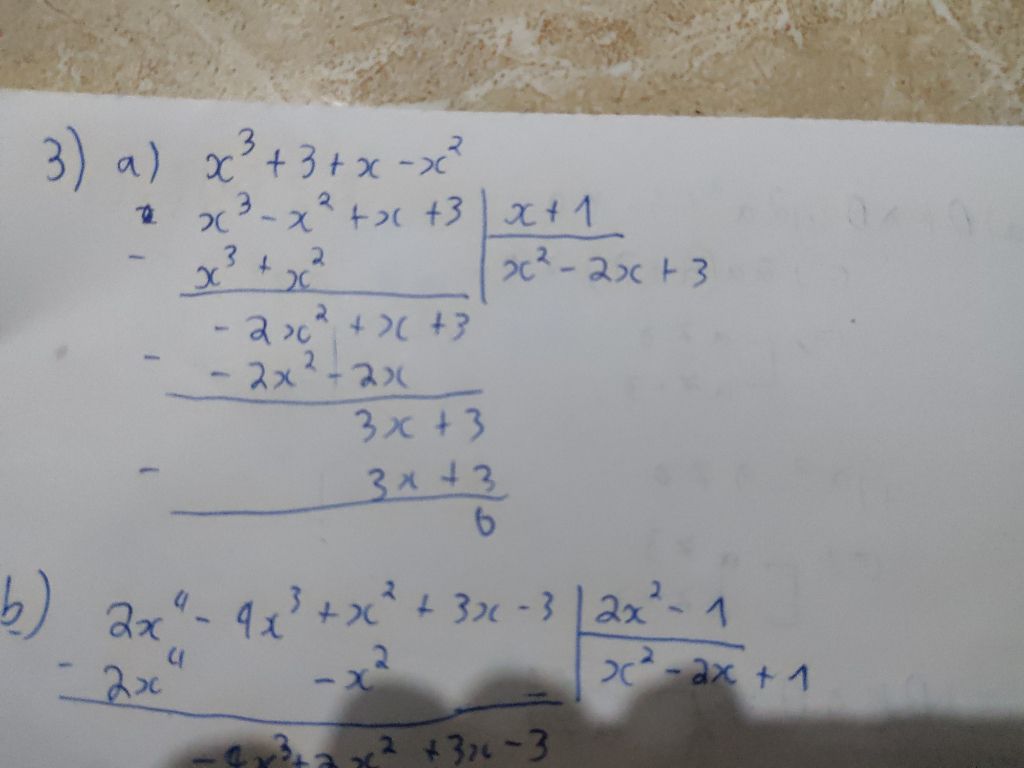 3) a) x³ + 3 + x - x²
x³ - x² + x + 3 | x + 1
- x³ + x² | x² - 2x + 3
- 2x² + x + 3
- - 2x² - 2x
3x + 3
- 3x + 3
0
b) 2x⁴ - 4x³ + x² + 3x - 3 | 2x² - 1
- 2x⁴ - x² | x² - 2x + 1
- 4x³ + 2x² + 3x - 3